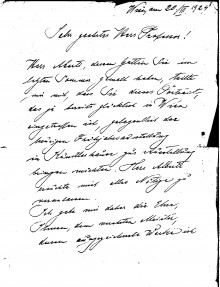 Wien, am 20/III. 1924
Sehr geehrter Herr Professor!
Herr Alberti, dessen Gattin Sie im
letzten Sommer gemalt haben, teilte
mir mit, dass Sie dieses Porträt,
das ja bereits glücklich in Wien
eingetroffen ist, gelegentlich der
Frühjahrsausstellung
im Künstlerhause zur Ausstellung
bringen möchten. Herr Alberti
möchte mich alles Nötige zu
veranlassen.
Ich gebe mir daher die Ehre,
Ihnen, dem verehrten Meister,
dessen ausgezeichnete Werke ich